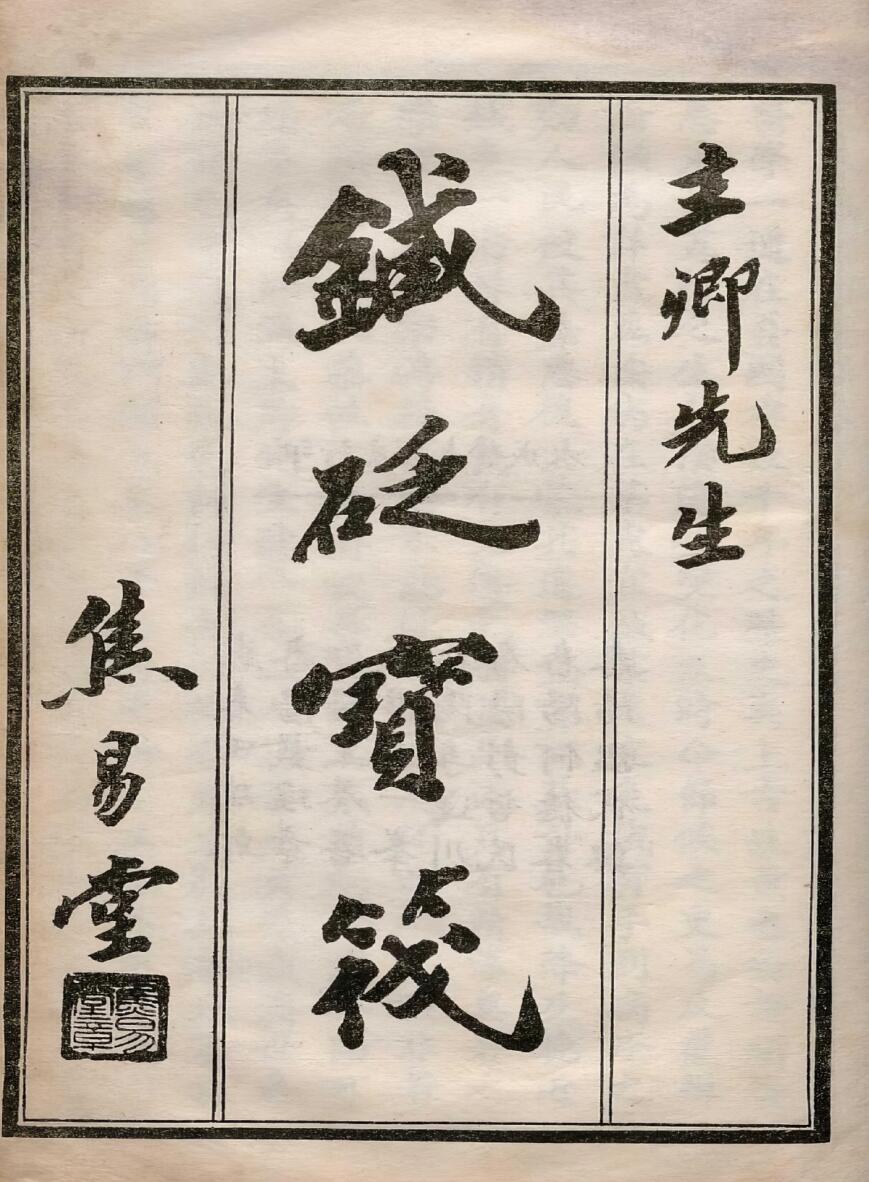 主卿先生
鍼砭寶筏
焦易堂
焦易
堂章